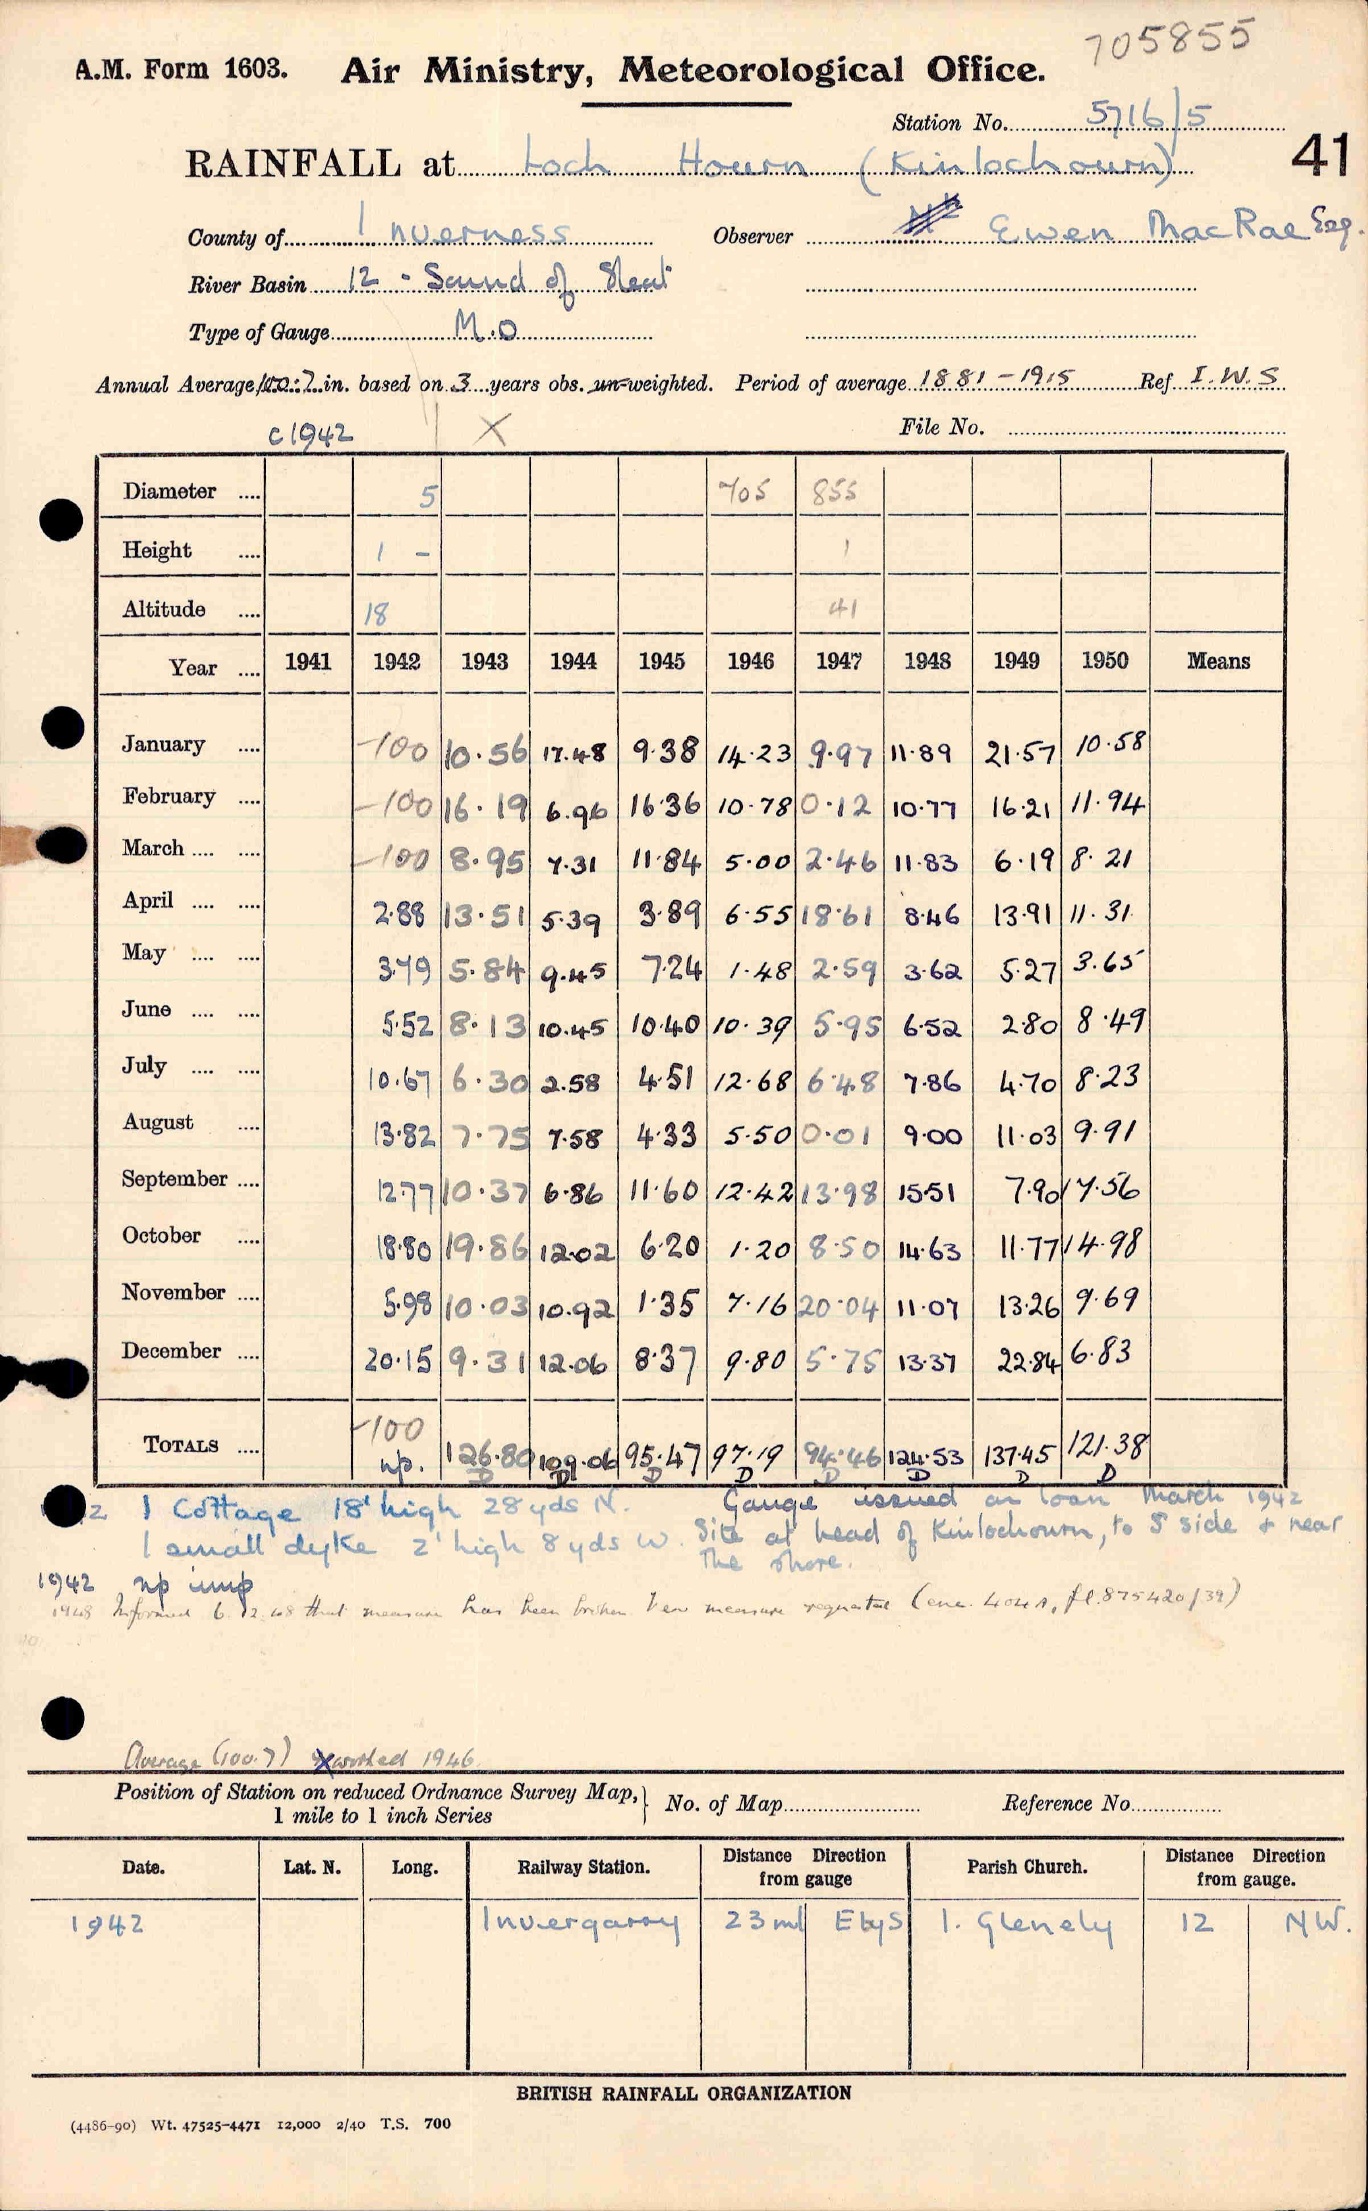 705855
A.M. Form 1603. Air Ministry, Meteorological Office.
Station No. 5716/5
RAINFALL at Loch Hourn (Kinlochourn) 41
County of Inverness Observer Ewen MacRae Esq.
River Basin 12 - Sound of Sleat
Type of Gauge M.O
Annual Average, 100.7 in. based on 3 years obs. un-weighted. Period of average 1881-1915 Ref I.W.S
File No.
c1942 X
Diameter .... 5 705 855
Height .... 1 - 1
Altitude .... 18 41
Year .... 1941 1942 1943 1944 1945 1946 1947 1948 1949 1950 Means
January .... -100 10.56 17.48 9.38 14.23 9.97 11.89 21.57 10.58
February .... -100 16.19 6.96 16.36 10.78 0.12 10.77 16.21 11.94
March .... .... -100 8.95 7.31 11.84 5.00 2.46 11.83 6.19 8.21
April .... .... 2.88 13.51 5.39 3.89 6.55 18.61 8.46 13.91 11.31
May .... .... 3.79 5.84 9.45 7.24 1.48 2.59 3.62 5.27 3.65
June .... .... 5.52 8.13 10.45 10.40 10.39 5.95 6.52 2.80 8.49
July .... .... 10.67 6.30 2.58 4.51 12.68 6.48 7.86 4.70 8.23
August .... 13.82 7.75 7.58 4.33 5.50 0.01 9.00 11.03 9.91
September .... 12.77 10.37 6.86 11.60 12.42 13.98 15.51 7.90 17.56
October .... 18.80 19.86 12.02 6.20 1.20 8.50 14.63 11.77 14.98
November .... 5.98 10.03 10.92 1.35 7.16 20.04 11.07 13.26 9.69
December .... 20.15 9.31 12.06 8.37 9.80 5.75 13.37 22.84 6.83
-100
TOTALS .... np. 126.80 109.06 95.47 97.19 94.46 124.53 137.45 121.38
D D D D D D D D
1 Cottage 18' high 28 yds N. Gauge issued on loan March 1942
1 small dyke 2' high 8 yds W. Site at head of Kinlochourn, to S side & near
the shore.
1942 np imp
1948 Informed 6.12.48 that measure has been broken. New measure requested (enc. 404A, fl.875420/39)
Average (100.7) worked 1946.
Position of Station on reduced Ordnance Survey Map, } No. of Map Reference No.
1 mile to 1 inch Series
Date. Lat. N. Long. Railway Station. Distance Direction from gauge Parish Church. Distance Direction from gauge.
1942 Invergarry 23ml E by S 1. Glenely 12 NW.
BRITISH RAINFALL ORGANIZATION
(4486-90) Wt. 47525-4471 12,000 2/40 T.S. 700